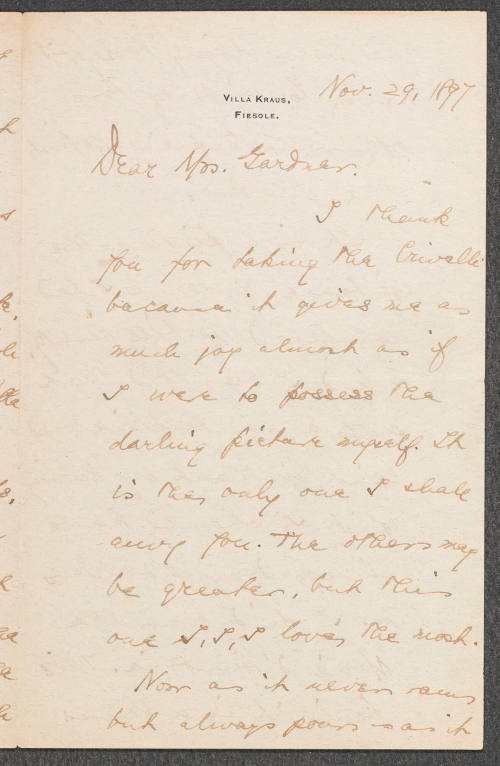 Nov. 29, 1897
VILLA KRAUS,
FIESOLE.
Dear Mrs. Gardner.
I thank
you for taking the Crivelli
because it gives me as
much joy almost as if
I were to possess the
darling picture myself. It
is the only one I shall
envy you. The others may
be greater, but this
one I, I, I love, the most.
Now as it never rains
but always pours as it